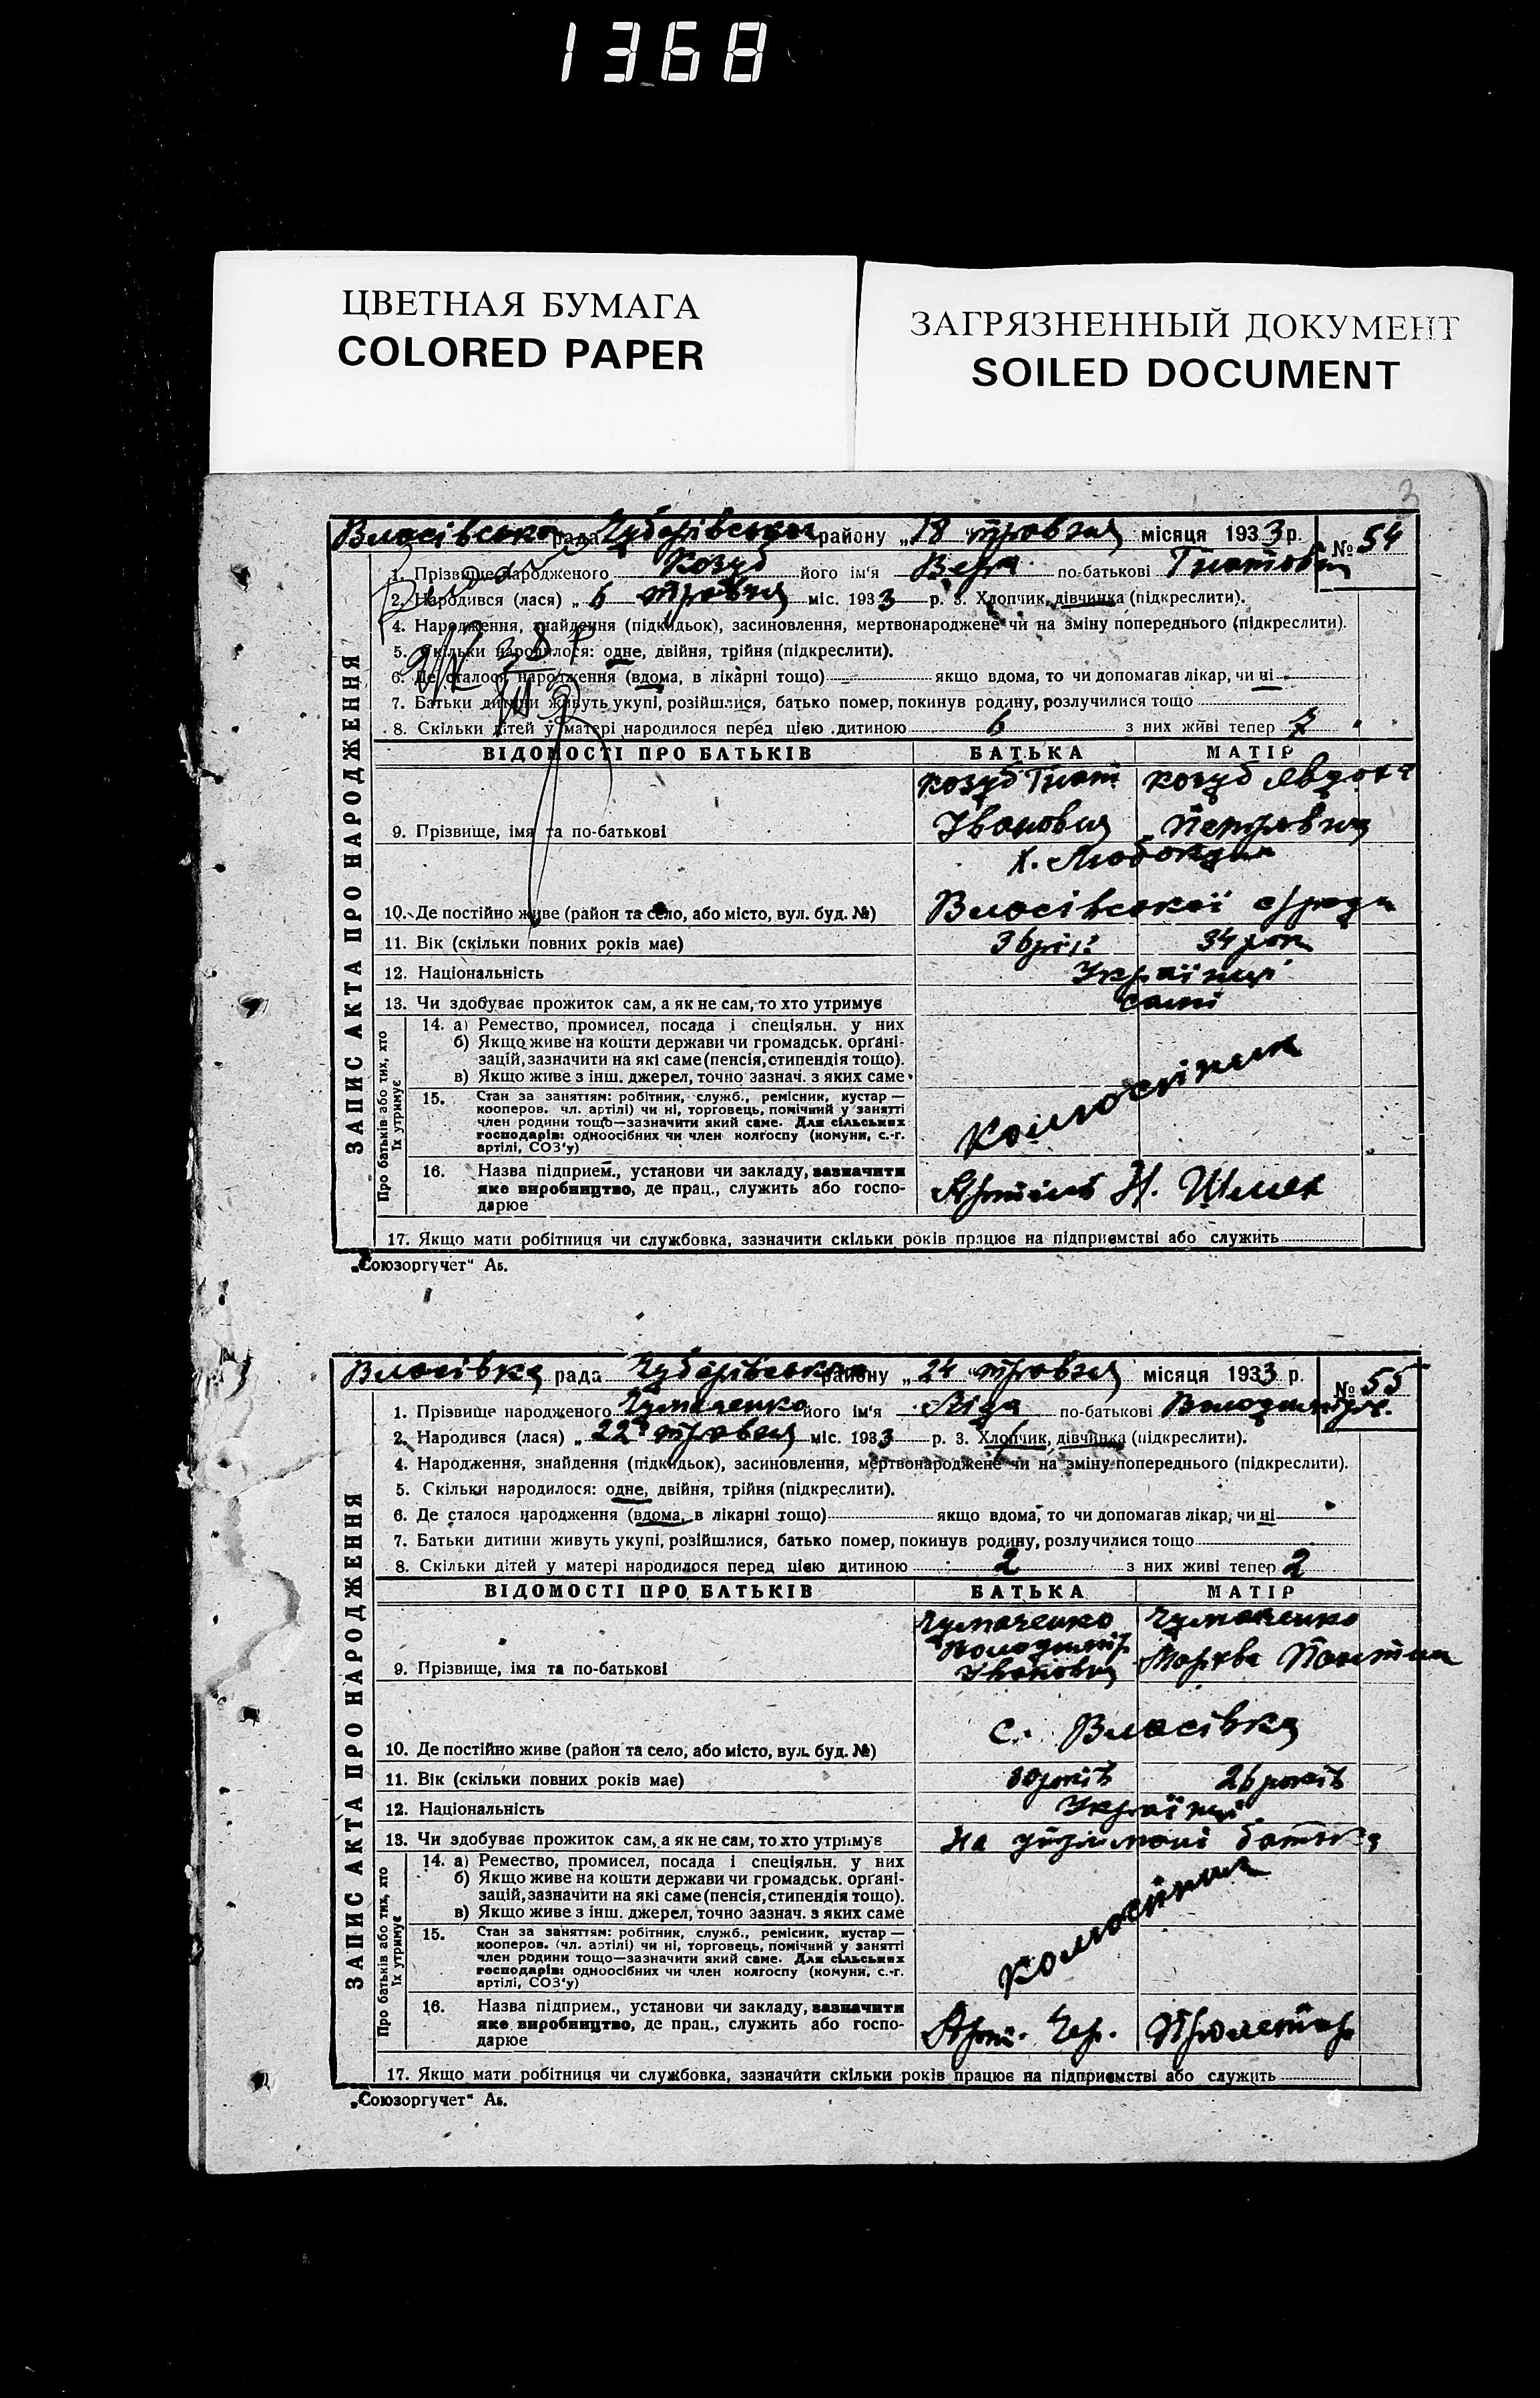 1368
ЦВЕТНАЯ БУМАГА
COLORED PAPER
ЗАГРЯЗНЕННЫЙ ДОКУМЕНТ
SOILED DOCUMENT
3
Власівська рада районy „18“ травня місяця 1933 р. № 54
1. Прізвище народженого Козуб його ім'я Вера по-батькові Гнатовн
2. Народився (лася) „ 6 травня міс. 1933 р. 3. Хлопчик, дівчинка (підкреслити).
4. Народження, знайдення (підкидьок), засиновлення, мертвонароджене чи на зміну попереднього (підкреслити).
5. Скільки народилося: одне, двійня, трійня (підкреслити).
6. Де сталося народження (вдома, в лікарні тощо) якщо вдома, то чи допомагав лікар, чи ні
7. Батьки дитини живуть укупі, розійшлися, батько помер, покинув родину, розлучилися тощо
8. Скільки дітей у матері народилося перед цією дитиною 6 з них живі тепер 7
ВІДОМОСТІ ПРО БАТЬКІВ БАТЬКА МАТІР
Козуб Гнат Козуб Явдоха
9. Прізвище, імя та по-батькові Іванович Петрівна
х.
10. Де постійно живе (район та село, або місто, вул. буд. №) Власівської с/ради
11. Вік (скільки повних років має) 36 34 рок
12. Національність Українці
13. Чи здобуває прожиток сам, а як не сам, то хто утримує самі
14. а) Ремество, промисел, посада і спеціяльн. у них
б) Якщо живе на кошти держави чи громадськ. органі-
зацій, зазначити на які саме (пенсія, стипендія тощо).
в) Якщо живе з інш. джерел, точно зазнач. з яких саме
15. Стан за заняттям: робітник, служб., ремісник, кустар —
кооперов. чл. артілі) чи ні, торговець, помічний у занятті
член родини тощо—зазначити який саме. Для сільських
господарів: одноосібних чи член колгоспу (комуни, с.-г.
артілі, СОЗ'у)
колгоспник
16. Назва підприєм., установи чи закладу, зазначити
яке виробництво, де прац., служить або госпо-
дарює
Артіль Н. Шлях
17. Якщо мати робітниця чи службовка, зазначити скільки років працює на підприємстві або служить
ЗАПИС АКТА ПРО НАРОДЖЕННЯ
Про батьків або тих, хто
їх утримує
„Союзоргучет“ Аь.
Власівка рада району „ 24 “ травня місяця 1933 р. № 55
1. Прізвище народженого Чумаченко його ім'я Ліда по-батькові Володимір.
2. Народився (лася) „ 22 “ травня міс. 1933 р. 3. Хлопчик, дівчинка (підкреслити).
4. Народження, знайдення (підкидьок), засиновлення, мертвонароджене чи на зміну попереднього (підкреслити).
5. Скільки народилося: одне, двійня, трійня (підкреслити).
6. Де сталося народження (вдома, в лікарні тощо) якщо вдома, то чи допомагав лікар, чи ні
7. Батьки дитини живуть укупі, розійшлися, батько помер, покинув родину, розлучилися тощо
8. Скільки дітей у матері народилося перед цією дитиною 2 з них живі тепер 2
ВІДОМОСТІ ПРО БАТЬКІВ БАТЬКА МАТІР
Чумаченко Чумаченко
Володимір
9. Прізвище, імя та по-батькові Іванович
10. Де постійно живе (район та село, або місто, вул. буд. №) с. Власівка
11. Вік (скільки повних років має) 30 років 26 років
12. Національність Українці
13. Чи здобуває прожиток сам, а як не сам, то хто утримує На утриманні батька
14. а) Ремество, промисел, посада і спеціяльн. у них
б) Якщо живе на кошти держави чи громадськ. органі-
зацій, зазначити на які саме (пенсія, стипендія тощо).
в) Якщо живе з інш. джерел, точно зазнач. з яких саме
15. Стан за заняттям: робітник, служб., ремісник, кустар —
кооперов. (чл. артілі) чи ні, торговець, помічний у занятті
член родини тощо—зазначити який саме. Для сільських
господарів: одноосібних чи член колгоспу (комуни, с.-г.
артілі, СОЗ'у)
колгоспник
16. Назва підприєм., установи чи закладу, зазначити
яке виробництво, де прац., служить або госпо-
дарює
Арт. Чер. Пролетар.
17. Якщо мати робітниця чи службовка, зазначити скільки років працює на підприємстві або служить
ЗАПИС АКТА ПРО НАРОДЖЕННЯ
Про батьків або тих, хто
їх утримує
„Союзоргучет“ Аь.